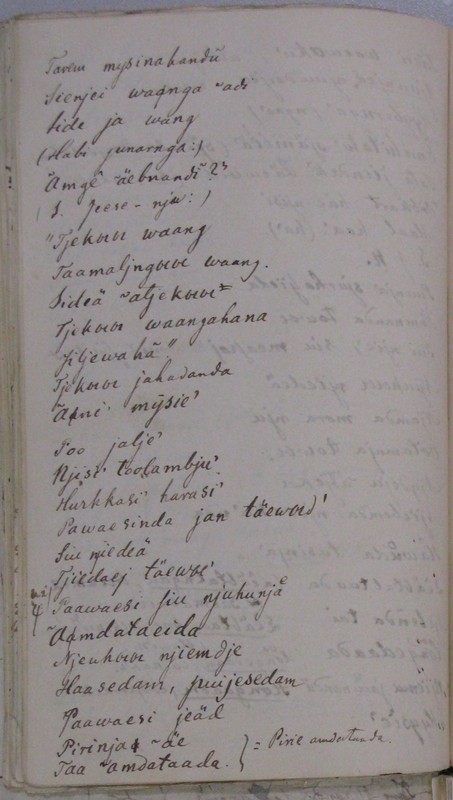 Tarem mysinahandū
Sienjei waạnga ~adi
Side ja wang
(Habi junarnga:)
"Amge ~äebnandi?"
(S. Jeese-nju:)
"Tjekowe waang
Taamaljngowe waang.
Sideä ~atjekowe=
Tjekowe waangahana
Jiljewahā"
Tjekowe jahadanda
Äsni mÿsie'
Poo jalje'
Njisi' toolambju'
Hurkkasi' harasi'
Pawaesinda jan täeword'
Siu njedeä
Tjiedaej täewoe'
Paawaesi siu njuhunjä
~Aamdataeida
Njeuhowe njiemdje
Haasedam, puijesedam
Paawaesi jeäd
Pirinja ~äe
Taa ~amdataada. } = Pirie amdortaada.